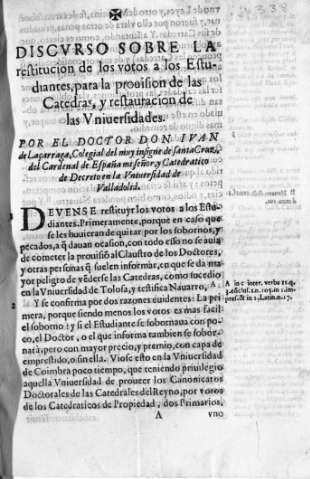 DISCVRSO SOBRE LA
restitucion de los votos a los Estu-
diantes, para la prouision de las
Catedras, y restauracion de
las Vniuersidades.
POR EL DOCTOR DON IVAN
de Laparraga, Colegial del muy insigne de santa Cruz,
del Cardenal de España mi señor, y Catedratico
de Decreto en la Vniuersidad de
Valladolid.
DEVENSE restituyr los votos a los Estu-
diantes. Primeramente, porque en caso que
se les huuieran de quitar por los sobornos, y
pecados, a q̃ dauan ocasion, con todo esso no se auia
de cometer la prouisiõ al Claustro de los Doctores,
y otras personas q̃ suelen informar, en que se da ma-
yor peligro de vẽderse las Catedras, como sucedio
en la Vniuersidad de Tolosa, y testifica Nauarro, A
Y se confirma por dos razones euidentes: La pri
mera, porque siendo menos los votos es mas facil
el soborno: y si el Estudiante se sobornaua con po-
co, el Doctor, o el que informa tambien se sobor-
narà, pero con mayor precio, y premio, con capa de
emprestido, o sin ella. Viose esto en la Vniuersidad
de Coimbra poco tiempo, que teniendo priuilegio
aquella Vniuersidad de proueer los Canonicatos
Doctorales de las Catedrales del Reyno, por votos
de los Catedraticos de Propiedad, dos Primarios,
A vno
A in c inter. verba 11. q.